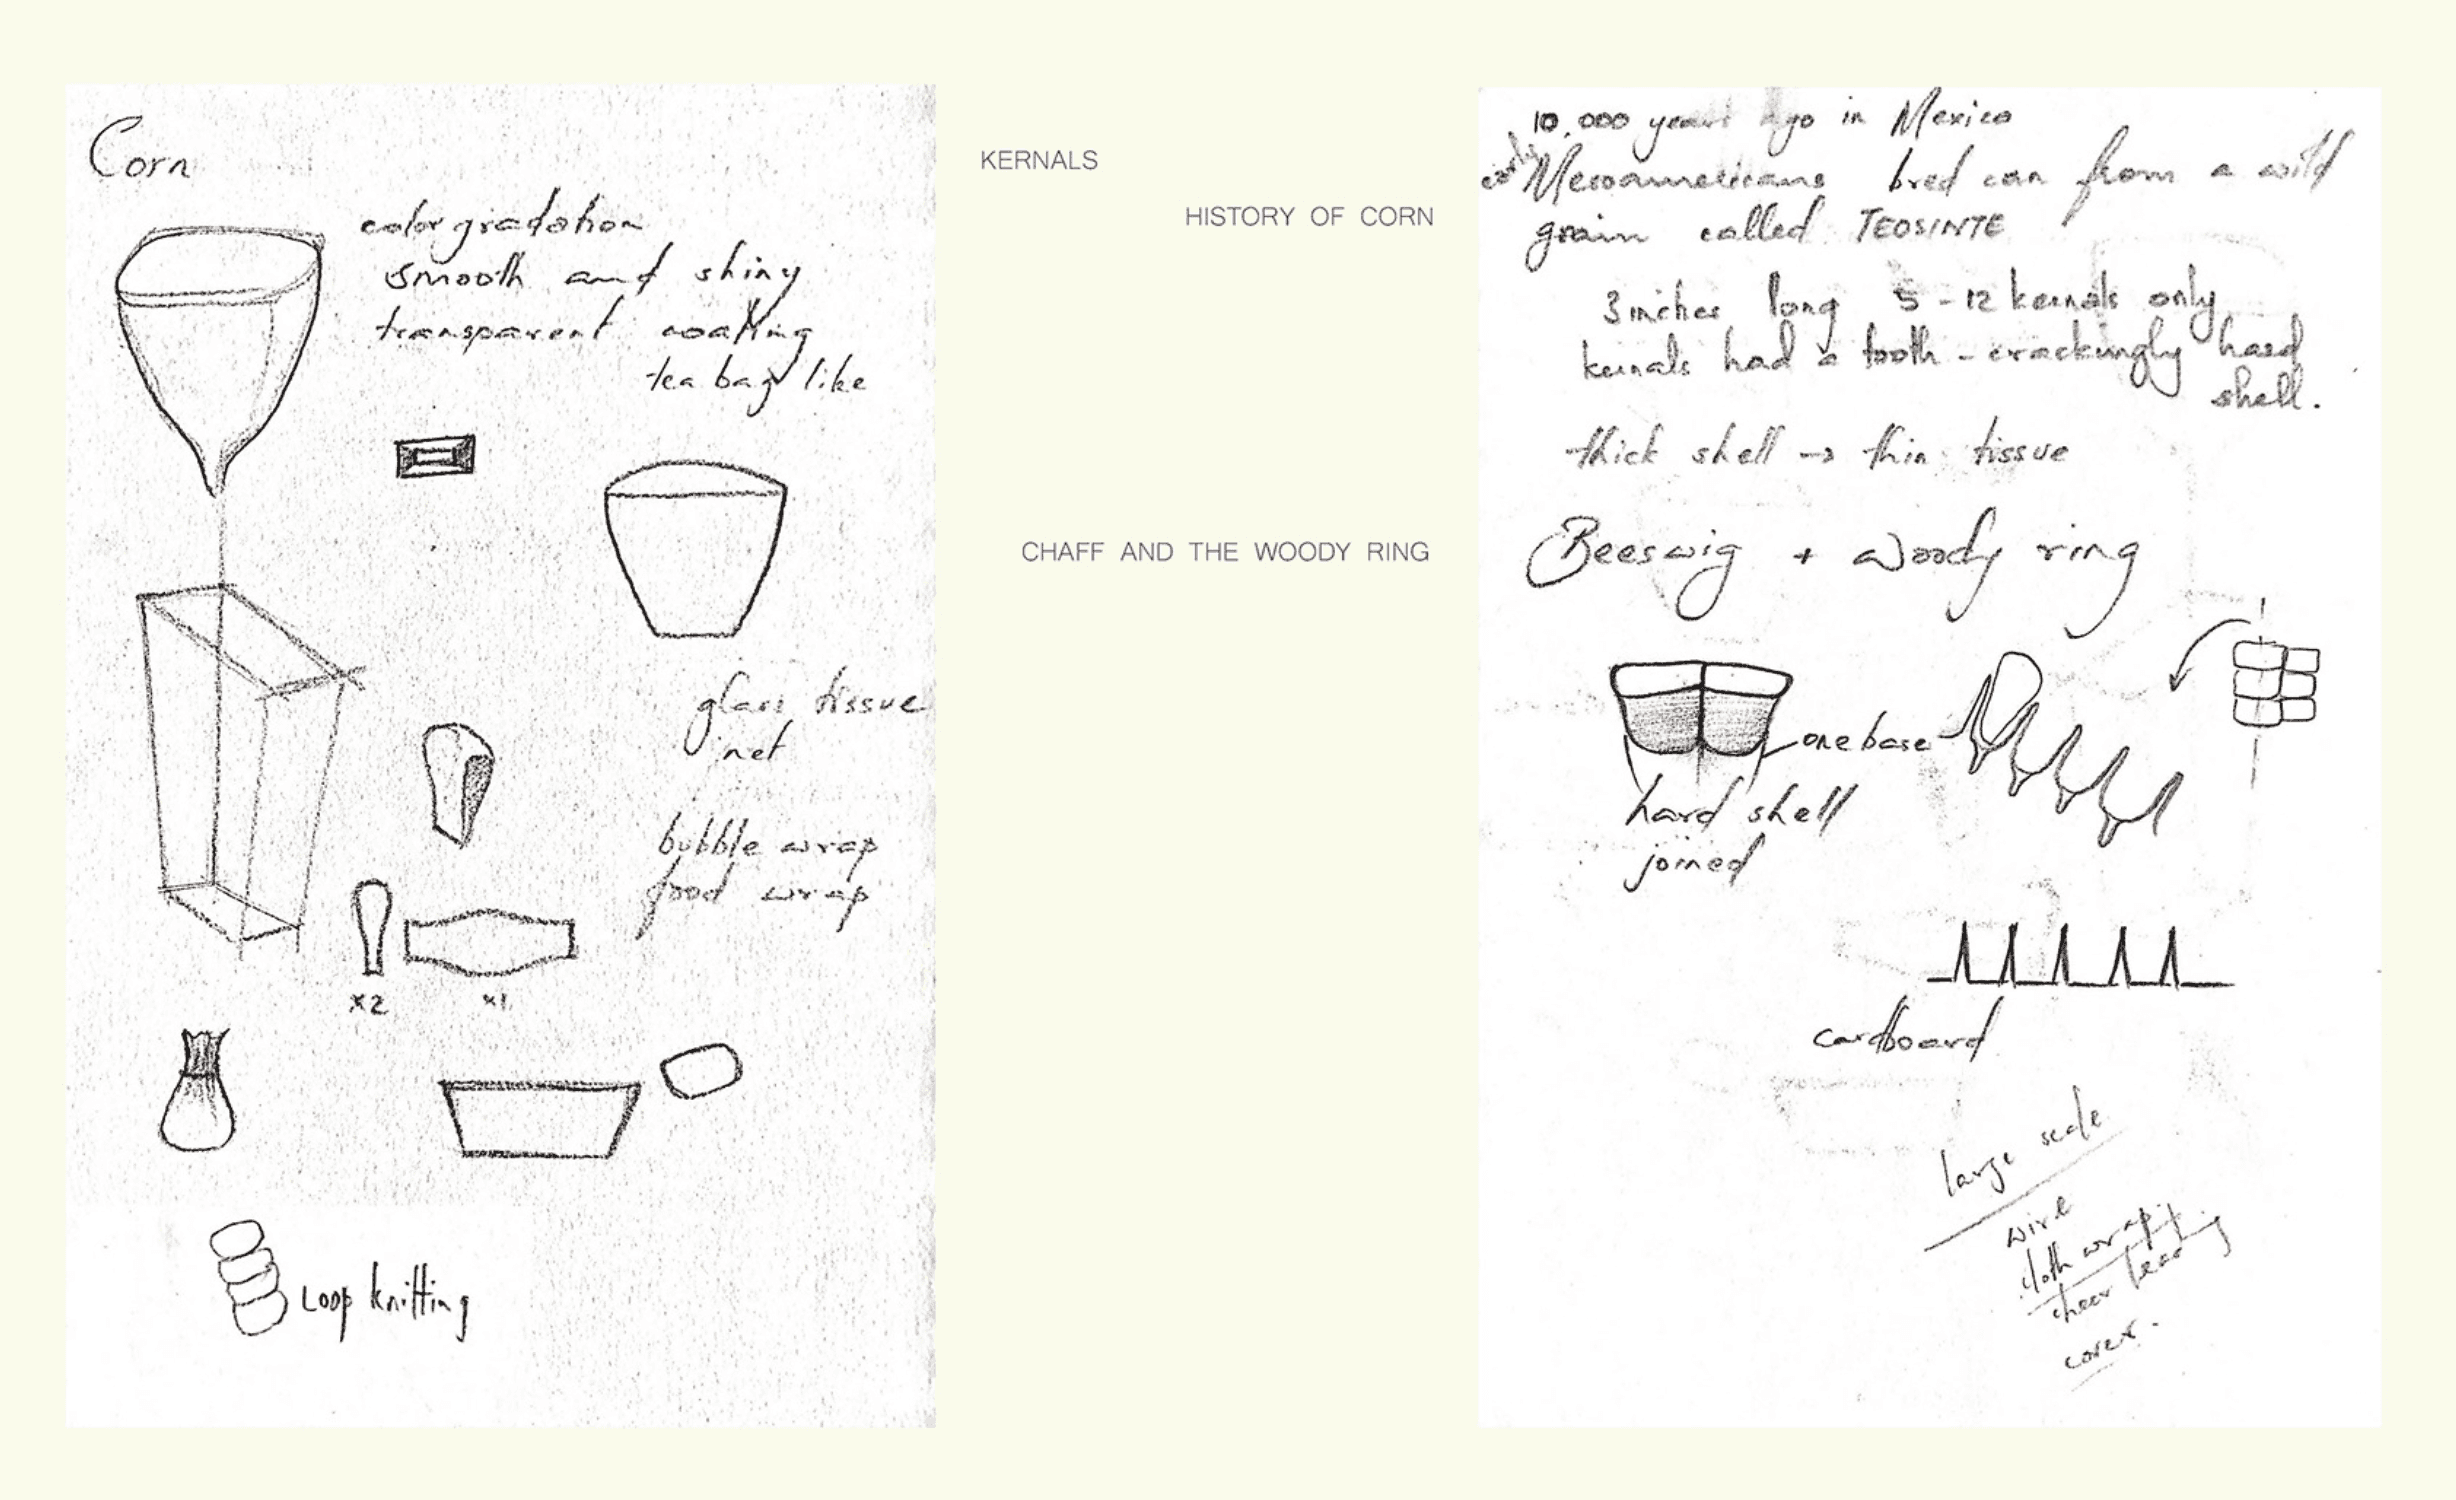 Corn
color gradation
smooth and shiny
transparent coating
tea bag like
glass tissue
net
bubble wrap
food wrap
x2
x1
Loop knitting
KERNALS
HISTORY OF CORN
CHAFF AND THE WOODY RING
10.000 years ago in Mexico
early Mesoamericans bred corn from a wild
grain called TEOSINTE
3 inches long 5-12 kernals only
kernals had a tooth-crackingly hard
shell.
thick shell → thin tissue
Beeswig + woody ring
one base
hard shell
joined
cardboard
large scale
wire
cloth wrap
sheer
cover.